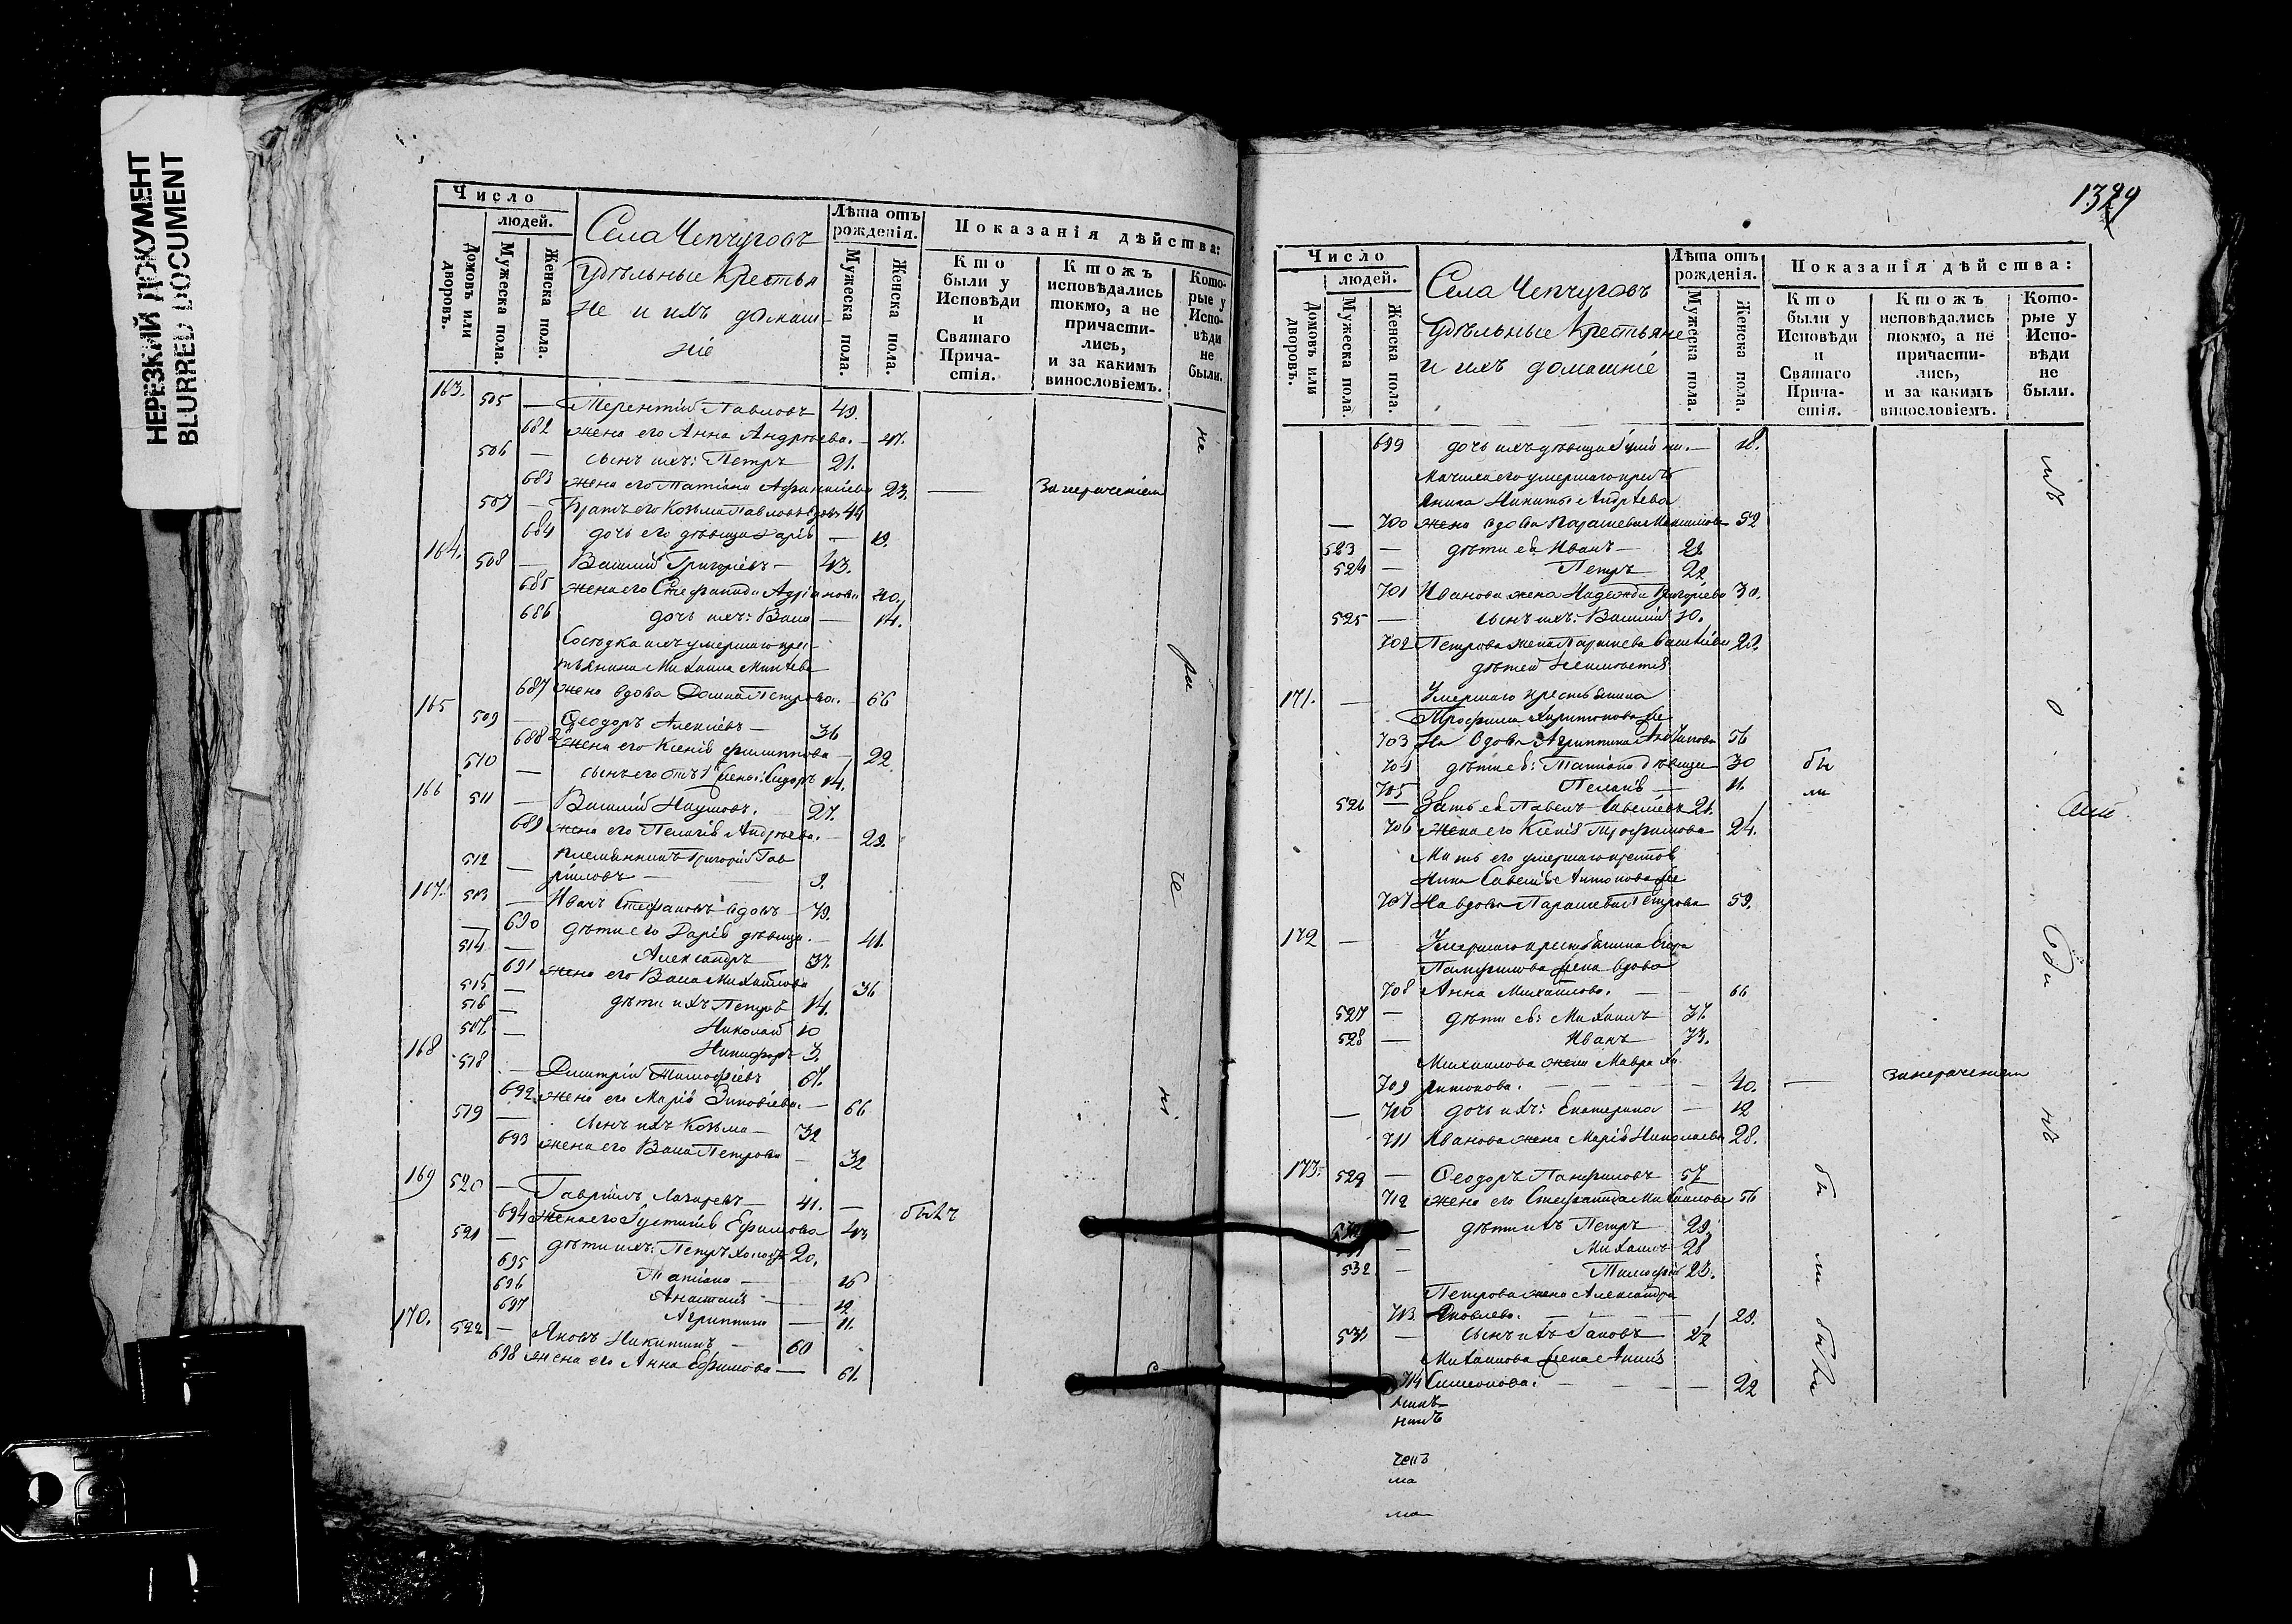 НЕРЕЗКИЙ ДОКУМЕНТ
BLURRED DOCUMENT
Число
людей.
Домовъ или дворовъ.
Мужеска пола.
Женска пола.
Села Чепчуговъ
Удѣльные Крестья
не и ихъ домаш-
ніе
Лѣта отъ рожденія.
Мужеска пола.
Женска пола.
Показанія дѣйства:
Кто были у Исповѣди и Святаго Прича- стія.
Ктожъ исповѣдались токмо, а не причасти- лись, и за какимъ винословіемъ.
Кото- рые у Испо- вѣди не были.
163. 505 — Терентій Павловъ 49.
682 жена его Анна Андрѣева. — 47.
506 — сынъ ихъ: Петръ 21.
683 жена его Татіана 23. — занерачениемъ
507 — Братъ его Козьма Павловъ вдовъ 44
684 дочь его дѣвица Дарія — 19.
164. 508 — Василій Григоріевъ — 43.
685 жена его Стефанида 40.
686 дочь ихъ: Васса — 14.
Сосѣдка ихъ умершаго крес-
тьянина Михаила
687 жена вдова Домна Петрова. — 66
165 509 — Ѳеодоръ Алексіевъ — 36
688 жена его Ксенія Филиппова — 22.
510 — сынъ его отъ 1й жены: Сидоръ 14.
166 511 — Василій Наумовъ. 27.
689 жена его Пелагія Андрѣева. — 29.
512 — племянникъ Григорій Гав
ріиловъ — 9.
167. 513 — Иванъ Стефановъ вдовъ — 79.
— 690 дѣти его Дарія дѣвица. — 41.
514 — Александръ 37.
691 жена его Васса Михайлова 36
515 — дѣти ихъ Петръ 14.
516 — Николай 10
517. — Никифоръ 3.
168 518 — Димитрій Тимофѣевъ 67.
692 жена его Марія Зиновіева. — 66
519 — сынъ ихъ Козьма — 32
693 жена его Васса Петрова — 32
169 520 — Гавріилъ Лазаревъ — 41. —
694 жена его Густинія Ефимова 43 былъ
521 — дѣти ихъ: Петръ холостъ 20.
695 Татіана — 16
696 Анастасія — 12
697 Агриппина — 11.
170. 522 — Яковъ Никитинъ — 60
698 жена его Анна Ефимова — 61.
1329
Число
людей.
Домовъ или дворовъ.
Мужеска пола.
Женска пола.
Села Чепчуговъ
Удѣльные Крестьяне
и ихъ домашніе
Лѣта отъ рожденія.
Мужеска пола.
Женска пола.
Показанія дѣйства:
Кто были у Исповѣди и Святаго Прича- стія.
Ктожъ исповѣдались токмо, а не причасти- лись, и за какимъ винословіемъ.
Кото- рые у Испо- вѣди не были.
699 дочь ихъ дѣвица — 18.
Мачиха его умершаго кресть
янина Никиты Андрѣева
— 700 жена вдова Параскева Максимова 52
523 — дѣти ея Иванъ — 28
524 — Петръ 22
701 Иванова жена Надежда Григоріева 30.
525 — сынъ ихъ: Василій 10.
702 Петрова жена Параскева 22.
дѣтей неимѣется
171. — Умершаго крестьянина
Трофима Харитонова же
703 на вдова Агриппина 56
704 дѣти ея: Татіана дѣвица 30 бы
705 Пелагія — 11. ли
526 — Зять ея Павелъ Савеліевъ 26.
706 жена его Ксенія Трофимова 24.
Мать его умершаго крестья
нина Савелія Антонова же
707 на вдова Параскева Петрова 59.
172 — Умершаго крестьянина Егора
Панфилова жена вдова
708 Анна Михайлова. — 66
527 — дѣти ея: Михаилъ 37.
528 — Иванъ 33.
Михаилова жена Мавра Ха
709 ритонова. — 40. — занерачениемъ
— 710 дочь ихъ: Екатерина — 12
711 Иванова жена Марія Николаева 28.
173. 529 — Ѳеодоръ Панфиловъ 57
712 жена его Стефанида Михайлова 56
— дѣти ихъ Петръ 29.
— Михаилъ 28
532 — Тимофей 23.
Петрова жена Александра
713 Яковлева. — 29.
— сынъ ихъ Іаковъ
Михаилова жена
714 Симеонова. — 22
бы ли бы ли